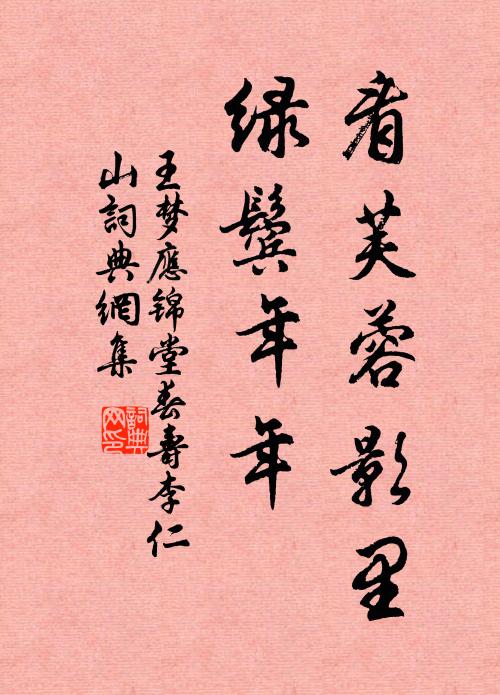 看芙蓉影里
绿鬓年年
王梦应锦堂春寿李仁
山词典网集
词典
网印